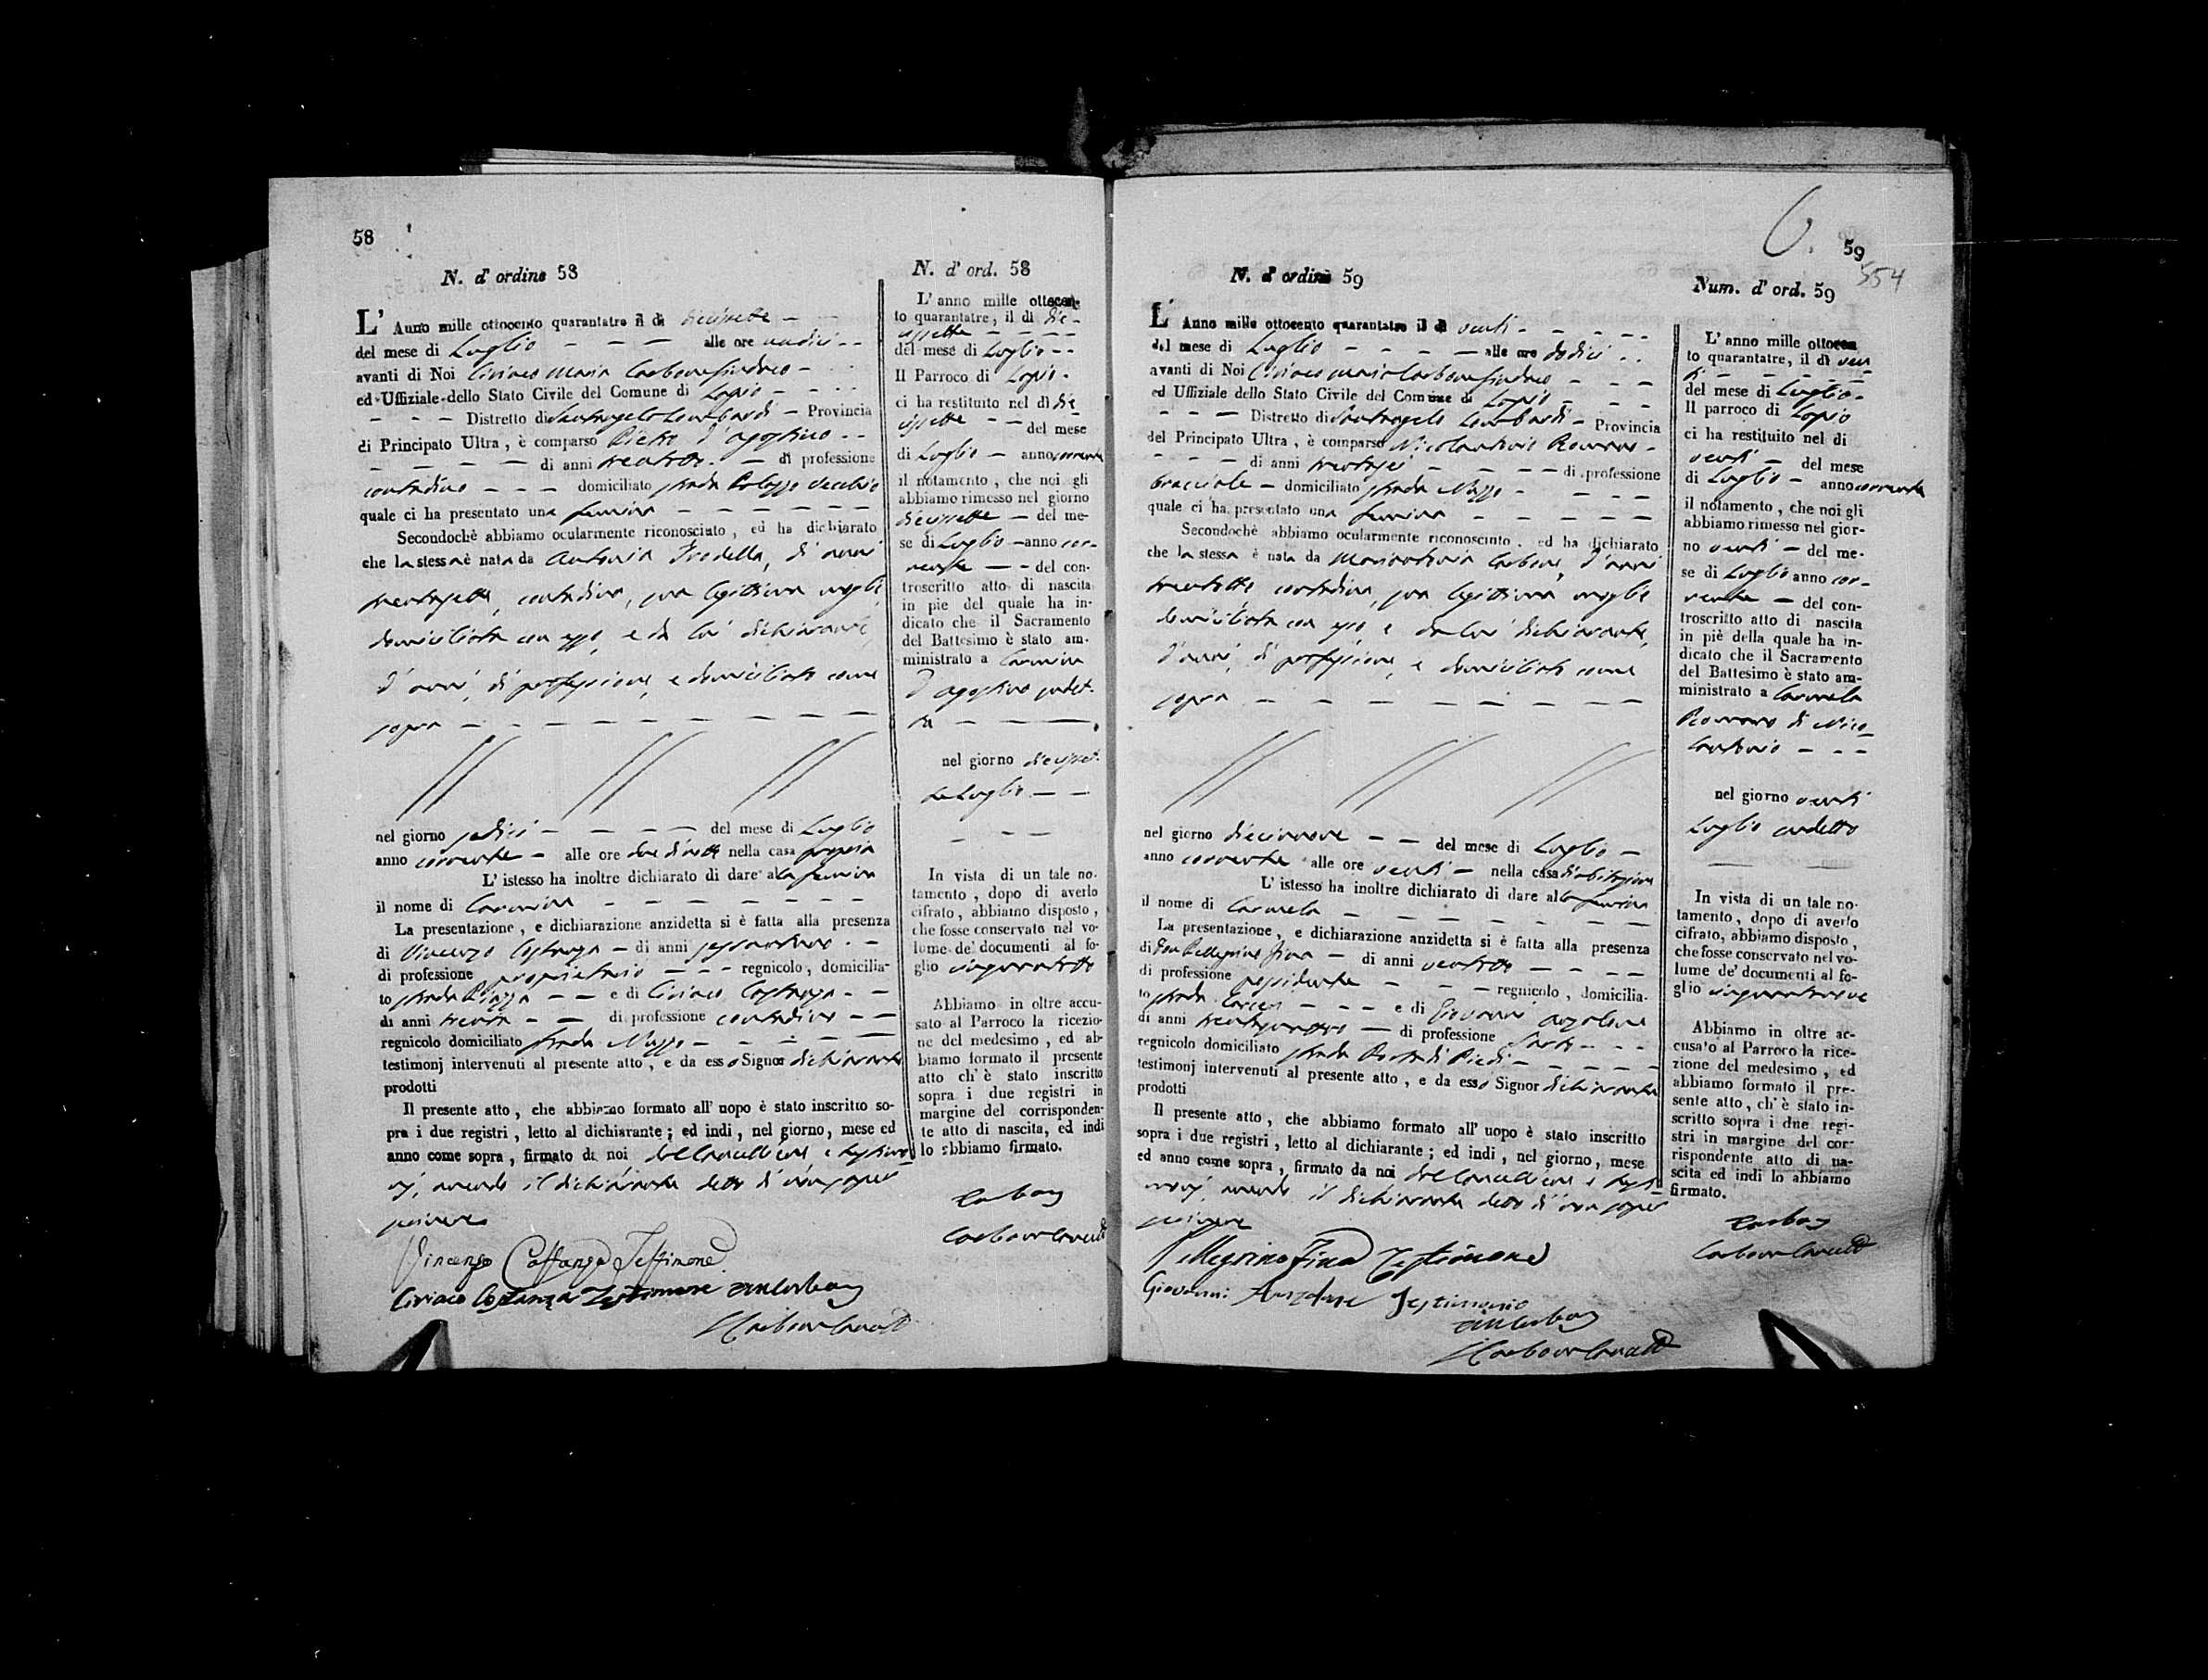 58
N. d' ordine 58
L' Anno mille ottocento quarantatre il di diecissette
del mese di Luglio alle ore undici
avanti di Noi Ciriaco Maria Carbone Sindaco
ed Uffiziale dello Stato Civile del Comune di Lapio
Distretto di Santangelo Lombardi Provincia
di Principato Ultra, è comparso Pietro d'agostino
di anni trentotto di professione
contadino domiciliato strada Palazzo Vecchio
quale ci ha presentato una femina
Secondochè abbiamo ocularmente riconosciuto, ed ha dichiarato
che la stessa è nata da Antonia Iredella, di anni
trentasette, contadina, sua legittima moglie,
domiciliata con esso, e da lui dichiarante,
d'anni, di professione, e domiciliato come
sopra
nel giorno sedici del mese di Luglio
anno corrente alle ore due di notte nella casa propria
L' istesso ha inoltre dichiarato di dare alla femina
il nome di Carmina
La presentazione, e dichiarazione anzidetta si è fatta alla presenza
di Vincenzo Costanza di anni sessantuno
di professione proprietario regnicolo, domicilia-
to strada Piazza e di Ciriaco Costanza
di anni trenta di professione contadino
regnicolo domiciliato strada Mazzo
testimonj intervenuti al presente atto, e da esso Signor dichiarante
prodotti
Il presente atto, che abbiamo formato all' uopo è stato inscritto so-
pra i due registri, letto al dichiarante; ed indi, nel giorno, mese ed
anno come sopra, firmato da noi dal Cancelliere e testimo-
nj, avendo il dichiarante detto di non saper
scrivere
Vincenzo Costanza Testimone
Ciriaco Costanza Testimone
N. d' ord. 58
L' anno mille ottocen-
to quarantatre, il di die-
cissette
del mese di Luglio
Il Parroco di Lapio
ci ha restituito nel dì die
cissette del mese
di Luglio anno corrente
il notamento, che noi gli
abbiamo rimesso nel giorno
diecissette del me-
se di Luglio anno cor-
rente del con-
troscritto atto di nascita
in pie del quale ha in-
dicato che il Sacramento
del Battesimo è stato am-
ministrato a Carmina
D'agostino sudet-
ta
nel giorno diecisset-
te Luglio
In vista di un tale no-
tamento, dopo di averlo
cifrato, abbiamo disposto,
che fosse conservato nel vo-
lume de' documenti al fo-
glio cinquantotto
Abbiamo in oltre accu-
sato al Parroco la ricezio-
ne del medesimo, ed ab-
biamo formato il presente
atto ch' è stato inscritto
sopra i due registri in
margine del corrisponden-
te atto di nascita, ed indi
lo abbiamo firmato.
Carbone
59
554
N. d' ordine 59
L' Anno mille ottocento quarantatre il di venti
del mese di Luglio alle ore dodici
avanti di Noi Ciriaco Maria Carbone Sindaco
ed Uffiziale dello Stato Civile del Comune di Lapio
Distretto di Santangelo Lombardi Provincia
del Principato Ultra, è comparso Nicolantonio Romano
di anni trentasei di professione
bracciale domiciliato strada Mazzo
quale ci ha presentato una femina
Secondochè abbiamo ocularmente riconosciuto, ed ha dichiarato
che la stessa è nata da Mariantonia Carbone, d'anni
trentotto contadina, sua legittima moglie
domiciliata con esso, e da lui dichiarante,
d'anni, di professione, e domiciliato come
sopra
nel giorno diecinnove del mese di Luglio
anno corrente alle ore venti nella casa d'abitazione
L' istesso ha inoltre dichiarato di dare alla femina
il nome di Carmela
La presentazione, e dichiarazione anzidetta si è fatta alla presenza
di Don Pellegrino Fina di anni ventotto
di professione possidente regnicolo, domicilia-
to strada Carceri e di Giovanni Anzalone
di anni trentaquattro di professione Sarto
regnicolo domiciliato strada Porta di Piedi
testimonj intervenuti al presente atto, e da esso Signor dichiarante
prodotti
Il presente atto, che abbiamo formato all' uopo è stato inscritto
sopra i due registri, letto al dichiarante; ed indi, nel giorno, mese
ed anno come sopra, firmato da noi dal Cancelliere e testi-
monj, avendo il dichiarante detto di non saper
scrivere
Pellegrino Fina Testimone
Giovanni Anzalone Testimonio
Num. d' ord. 59
L' anno mille ottocen
to quarantatre, il dì ven-
ti
del mese di Luglio
Il parroco di Lapio
ci ha restituito nel di
venti del mese
di Luglio anno corrente
il notamento, che noi gli
abbiamo rimesso nel gior-
no venti del me-
se di Luglio anno cor-
rente del con-
troscritto atto di nascita
in piè della quale ha in-
dicato che il Sacramento
del Battesimo è stato am-
ministrato a Carmela
Romano di Nico-
lantonio
nel giorno venti
Luglio cendetto
In vista di un tale no-
tamento, dopo di averlo
cifrato, abbiamo disposto,
che fosse conservato nel vo-
lume de' documenti al fo-
glio cinquantanove
Abbiamo in oltre ac-
cusato al Parroco la rice-
zione del medesimo, ed
abbiamo formato il pre-
sente atto, ch' è stato in-
scritto sopra i due regi-
stri in margine del cor-
rispondente atto di na-
scita ed indi lo abbiamo
firmato.
Carbone